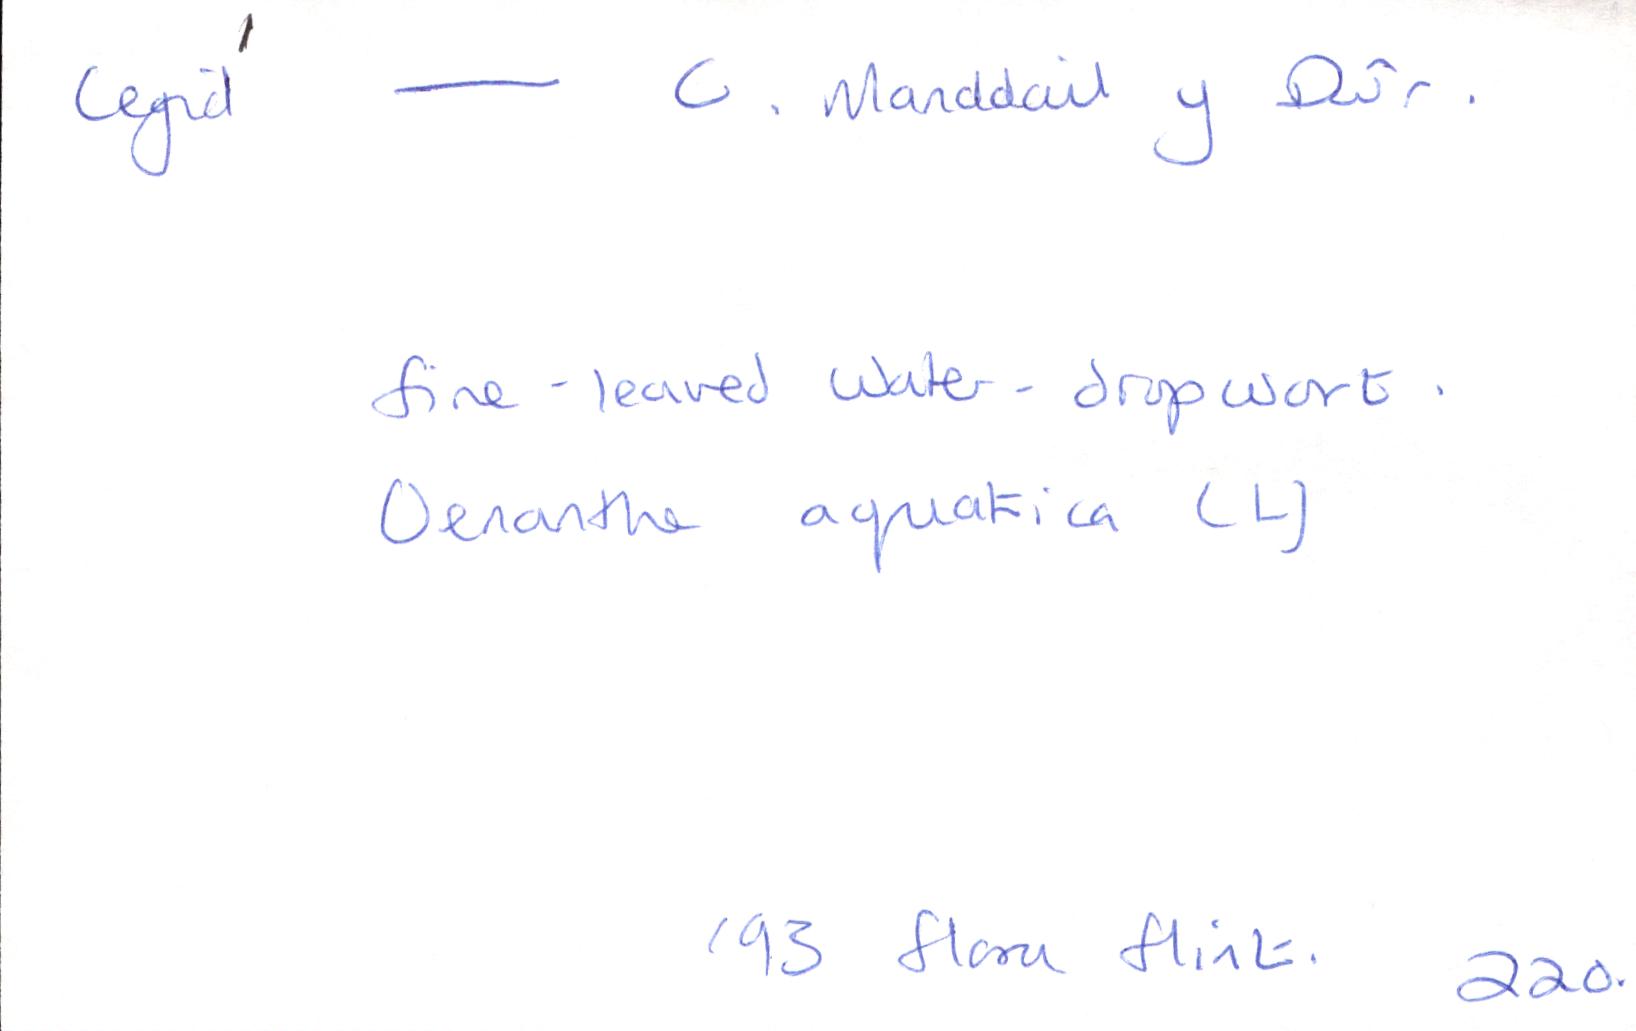 Cegid' — C. Manddail y Dŵr.
fine-leaved water-dropwort.
Oenanthe aquatica (L)
'93 flora flint. 220.